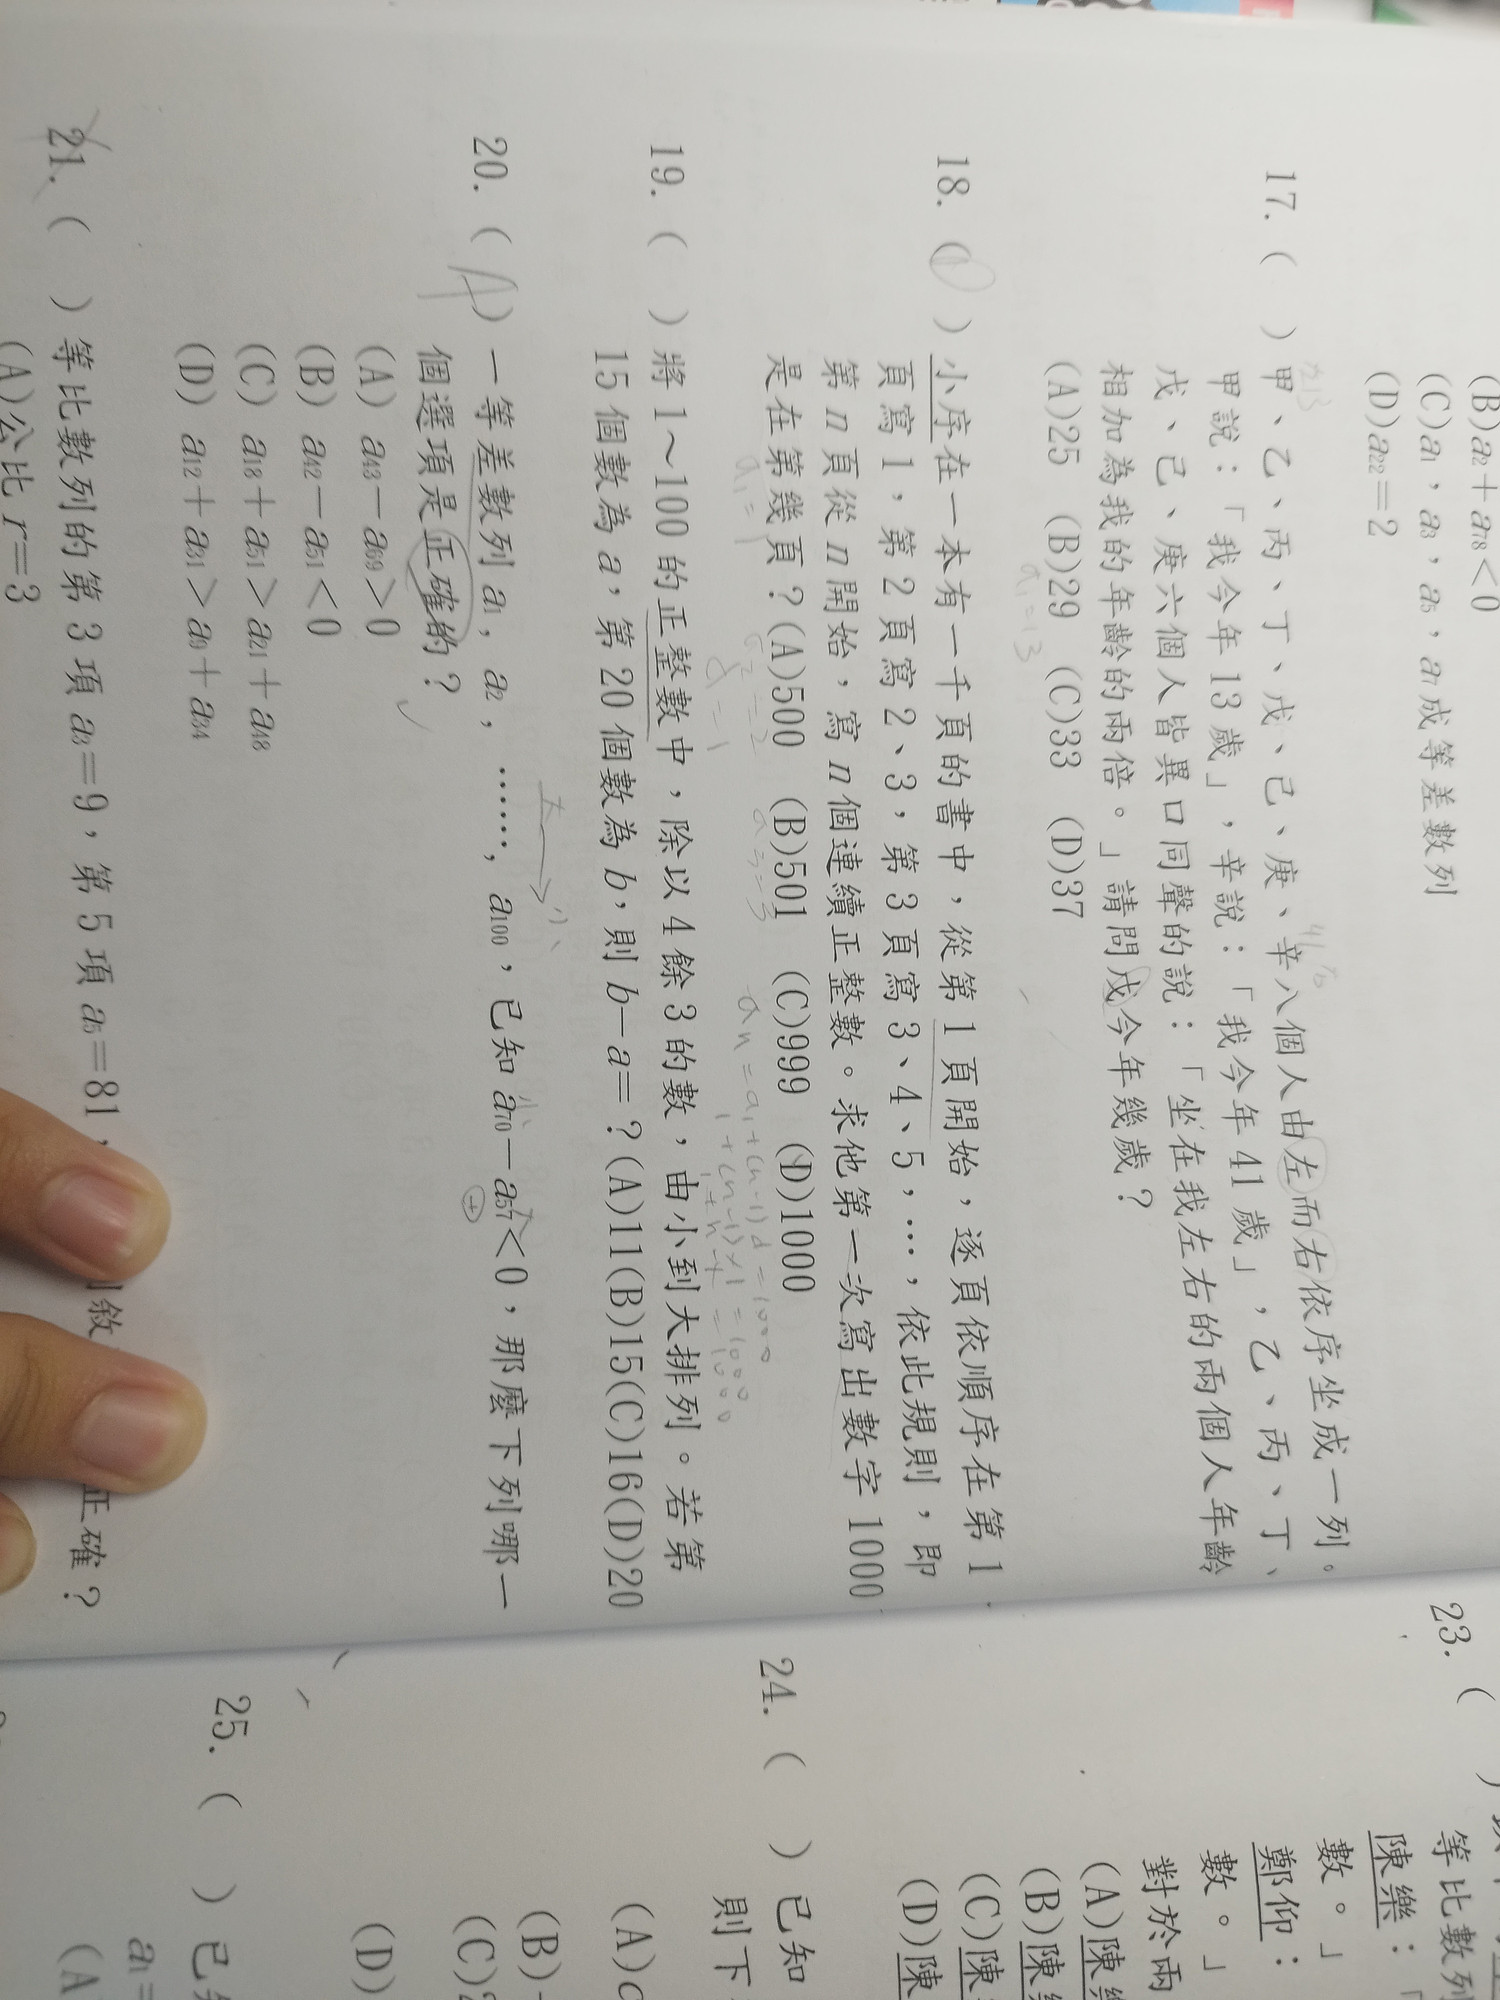 (B)a₂＋a₇₈＜0
(C)a₁，a₃，a₅，a₇成等差數列
(D)a₂₂＝2
17.(　)甲、乙、丙、丁、戊、己、庚、辛八個人由左而右依序坐成一列。
甲說：「我今年13歲」，辛說：「我今年41歲」，乙、丙、丁、
戊、己、庚六個人皆異口同聲的說：「坐在我左右的兩個人年齡
相加為我的年齡的兩倍。」請問戊今年幾歲？
(A)25 (B)29 (C)33 (D)37
a₁=13
18.(　)小序在一本有一千頁的書中，從第1頁開始，逐頁依順序在第1
頁寫1，第2頁寫2、3，第3頁寫3、4、5，…，依此規則，即
第n頁從n開始，寫n個連續正整數。求他第一次寫出數字1000
是在第幾頁？(A)500 (B)501 (C)999 (D)1000
a₁=1 a₂=2 a₃=3 an=a₁+(n-1)d=1000
d=1 1+(n-1)×1=1000
19.(　)將1～100的正整數中，除以4餘3的數，由小到大排列。若第
15個數為a，第20個數為b，則b－a＝？(A)11(B)15(C)16(D)20
大→小
20.(A)一等差數列a₁，a₂，……，a₁₀₀，已知a₁₀－a₅₇＜0，那麼下列哪一
個選項是正確的？
(A) a₄₃－a₆₉＞0
(B) a₄₂－a₅₁＜0
(C) a₁₈＋a₅₁＞a₂₁＋a₄₈
(D) a₁₂＋a₃₁＞a₉＋a₃₄
21.(　)等比數列的第3項a₃＝9，第5項a₅＝81，
正確？
(A)公比r＝3
23.(　)
等比數列
陳樂：「
數。」
鄭仰：
數。」
對於兩
(A)陳樂
(B)陳
(C)陳
(D)陳
24.(　)已知
則下
(A)
(B)
(C)
(D)
25.(　)已
a₁＝
(A